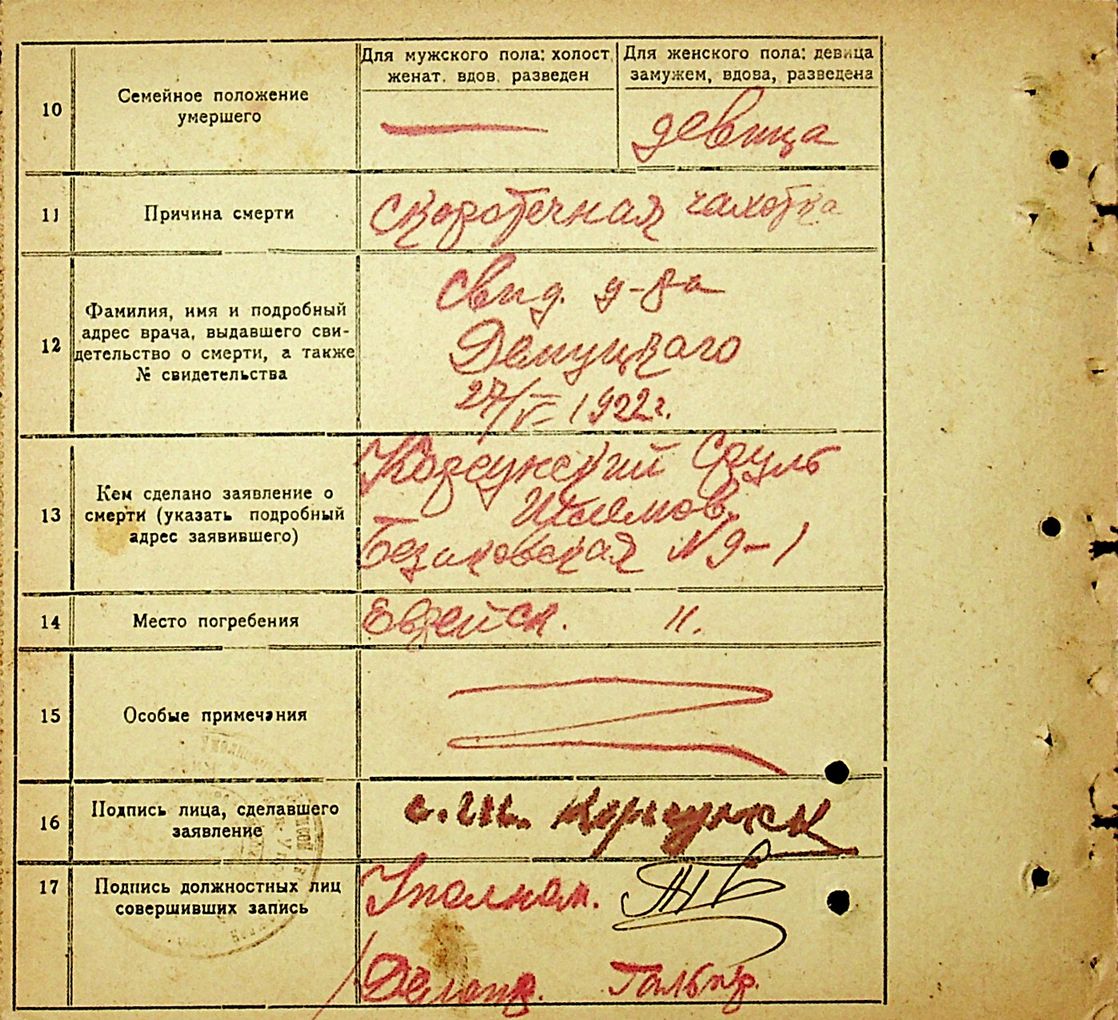 10
Семейное положение
умершего
Для мужского пола: холост
женат, вдов, разведен
Для женского пола: девица
замужем, вдова, разведена
девица
11
Причина смерти
скоротечная чахотка
12
Фамилия, имя и подробный
адрес врача, выдавшего сви-
детельство о смерти, а также
№ свидетельства
Свид. д-ра
Демуцкаго
27/V 1922 г.
13
Кем сделано заявление о
смерти (указать подробный
адрес заявившего)
Корсунский Сруль
Безаковская N 9-1
14
Место погребения
Еврейск.
15
Особые примечания
16
Подпись лица, сделавшего
заявление
Корсунск
17
Подпись должностных лиц
совершивших запись
Уполном.
Делопр.